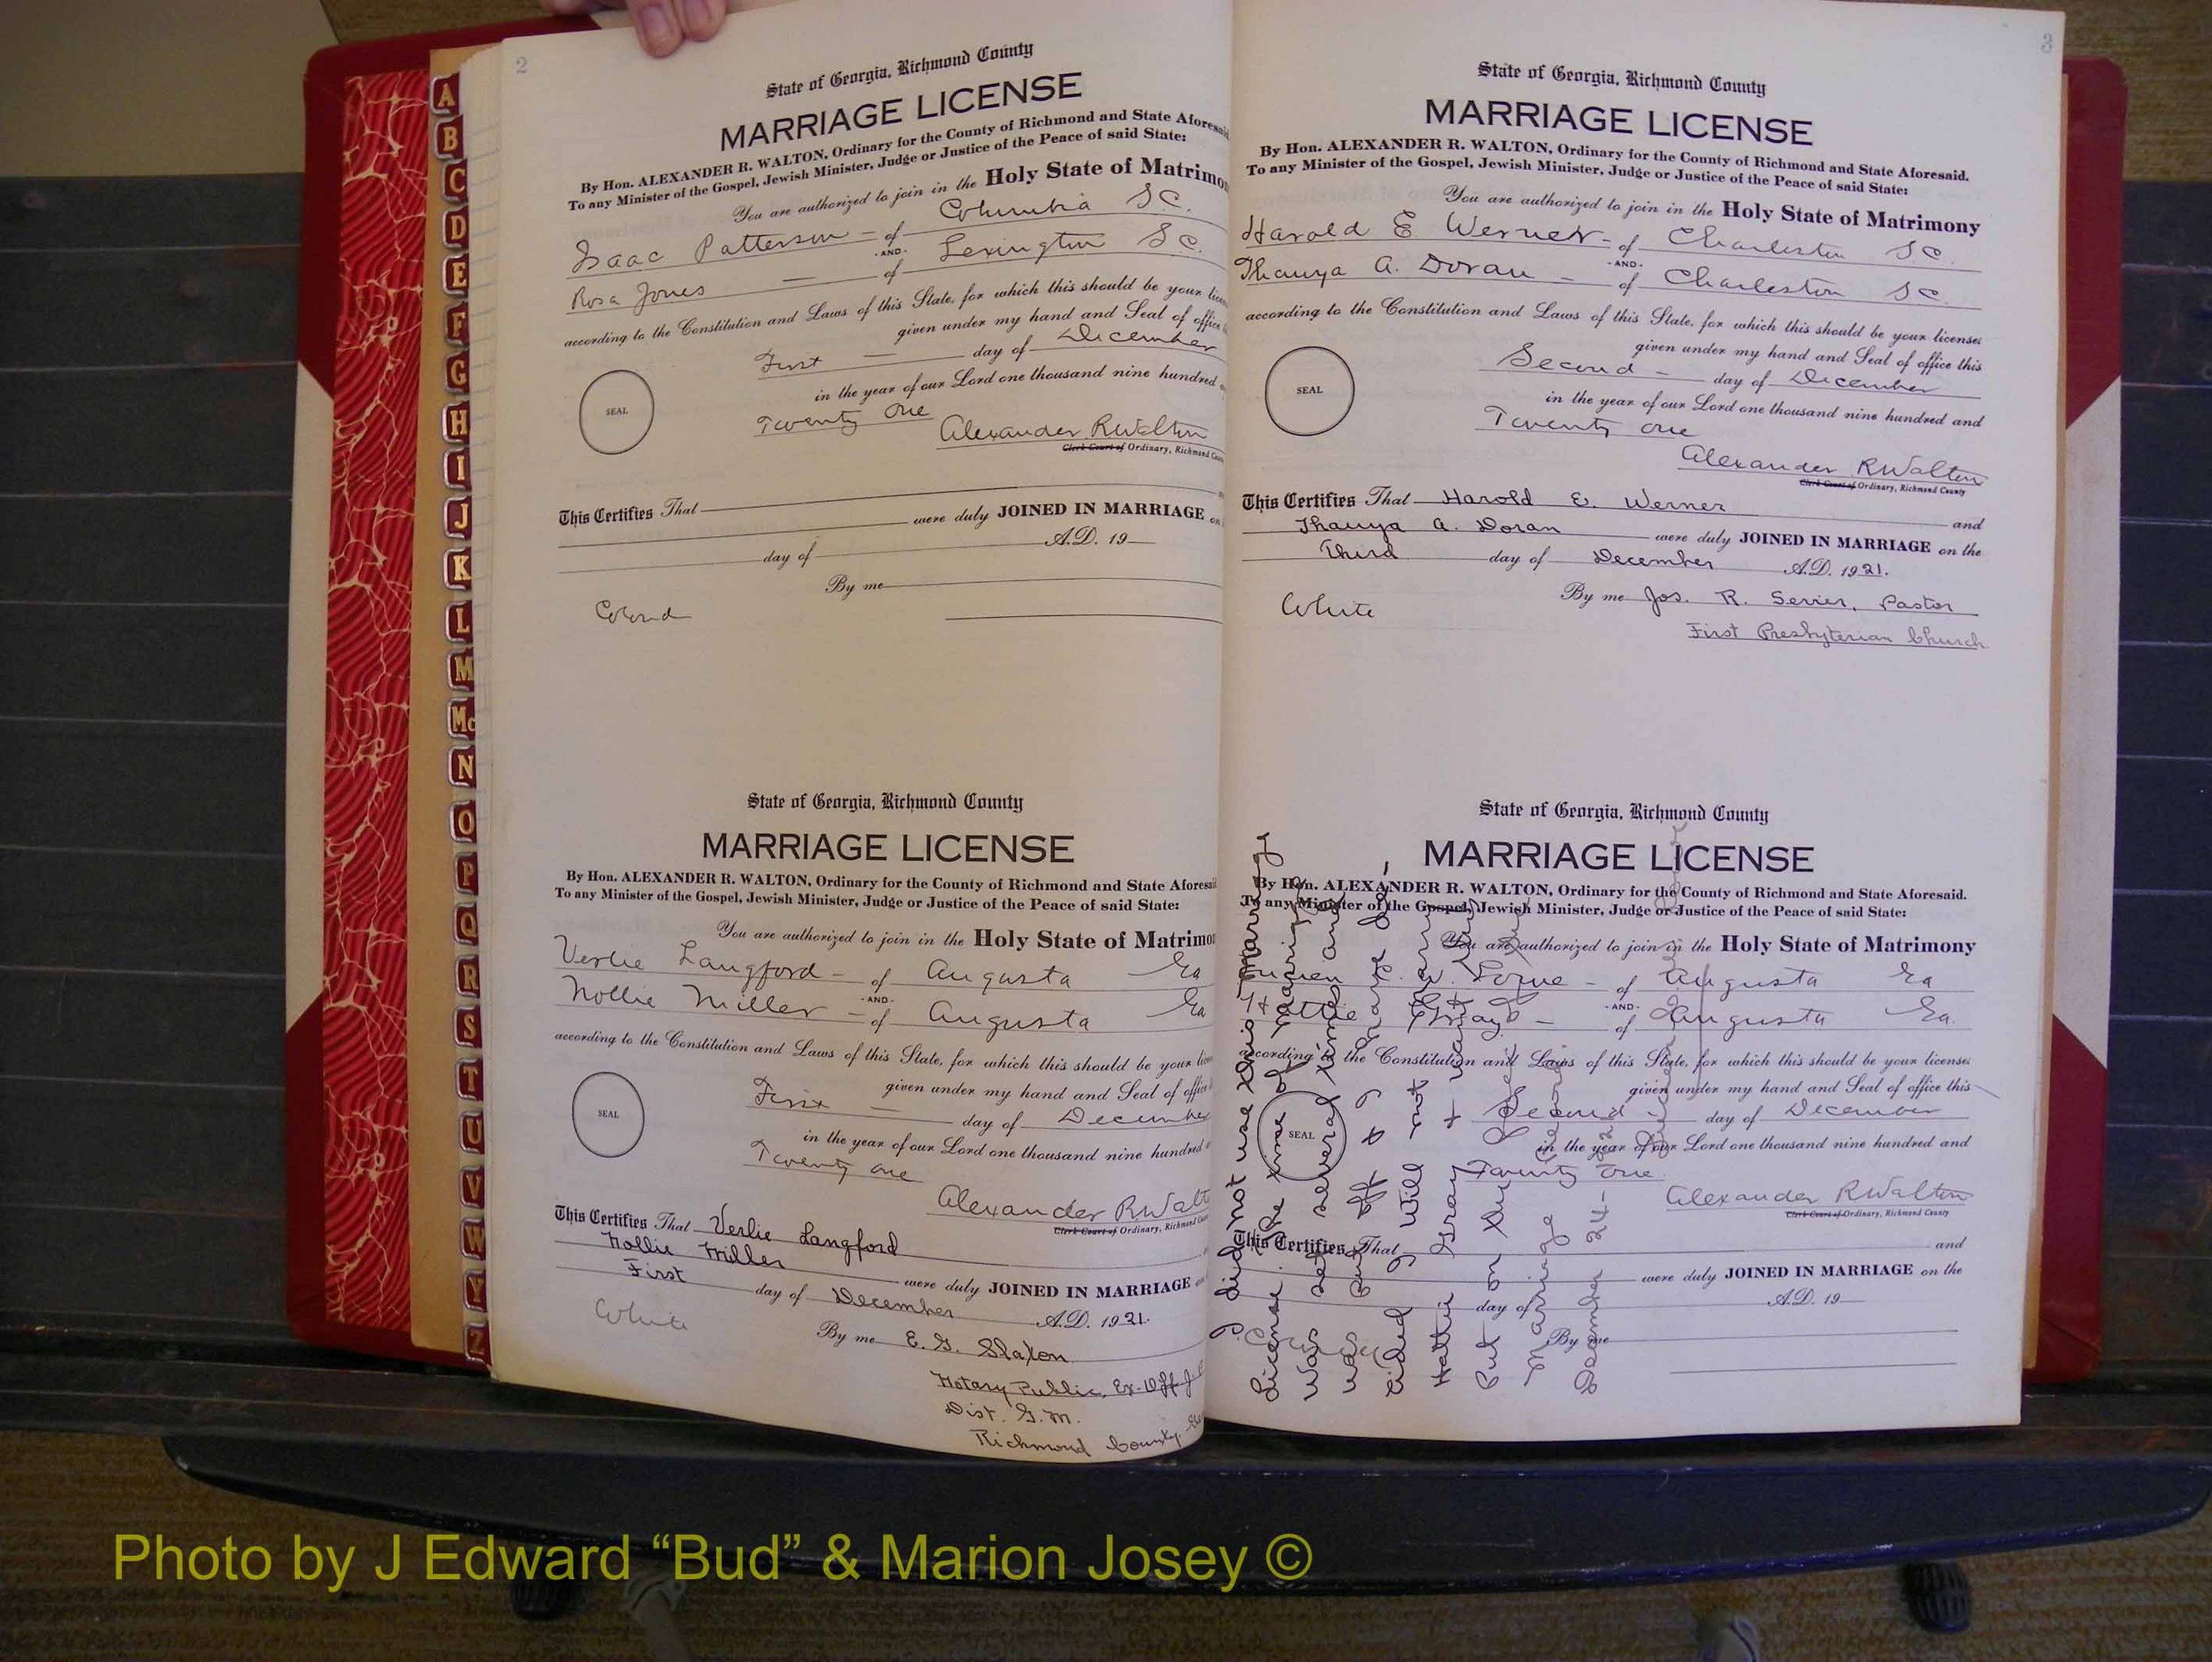 2
State of Georgia, Richmond County
MARRIAGE LICENSE
By Hon. ALEXANDER R. WALTON, Ordinary for the County of Richmond and State Aforesaid
To any Minister of the Gospel, Jewish Minister, Judge or Justice of the Peace of said State:
You are authorized to join in the Holy State of Matrimo
Isaac Patterson - of Columbia S C.
- AND -
Rosa Jones — of Lexington S C.
according to the Constitution and Laws of this State, for which this should be your lice
given under my hand and Seal of office
First — day of December
in the year of our Lord one thousand nine hundred
Twenty One
SEAL
Alexander R Walton
Clerk Court of Ordinary, Richmond Coun
This Certifies That
were duly JOINED IN MARRIAGE on
day of A.D. 19
By me
Colored
State of Georgia, Richmond County
MARRIAGE LICENSE
By Hon. ALEXANDER R. WALTON, Ordinary for the County of Richmond and State Aforesai
To any Minister of the Gospel, Jewish Minister, Judge or Justice of the Peace of said State:
You are authorized to join in the Holy State of Matrimon
Verlie Langford - of Augusta Ga
- AND -
Nollie Miller - of Augusta Ga
according to the Constitution and Laws of this State, for which this should be your lice
given under my hand and Seal of office
First — day of December
in the year of our Lord one thousand nine hundred
Twenty one
SEAL
Alexander R Walt
Clerk Court of Ordinary, Richmond Coun
This Certifies That Verlie Langford
Nollie Miller were duly JOINED IN MARRIAGE on
First day of December A.D. 1921.
White
By me E. G. Slaton
Notary Public, Ex-Off J.
Dist. G.M.
Richmond County
3
State of Georgia, Richmond County
MARRIAGE LICENSE
By Hon. ALEXANDER R. WALTON, Ordinary for the County of Richmond and State Aforesaid.
To any Minister of the Gospel, Jewish Minister, Judge or Justice of the Peace of said State:
You are authorized to join in the Holy State of Matrimony
Harold E Werner - of Charleston S C.
- AND -
Thauya A. Doran - of Charleston S C.
according to the Constitution and Laws of this State, for which this should be your license;
given under my hand and Seal of office this
Second - day of December
in the year of our Lord one thousand nine hundred and
Twenty one
SEAL
Alexander R Walton
Clerk Court of Ordinary, Richmond County
This Certifies That Harold E. Werner and
Thauya A. Doran were duly JOINED IN MARRIAGE on the
Third day of December A.D. 1921.
By me Jos. R. Sevier, Pastor
First Presbyterian Church
White
State of Georgia, Richmond County
MARRIAGE LICENSE
By Hon. ALEXANDER R. WALTON, Ordinary for the County of Richmond and State Aforesaid.
To any Minister of the Gospel, Jewish Minister, Judge or Justice of the Peace of said State:
You are authorized to join in the Holy State of Matrimony
of Augusta Ga
- AND -
Hattie Mays - of Augusta Ga.
according to the Constitution and Laws of this State, for which this should be your license;
given under my hand and Seal of office this
Second - day of December
in the year of our Lord one thousand nine hundred and
Twenty One
SEAL
Alexander R Walton
Clerk Court of Ordinary, Richmond County
This Certifies That and
were duly JOINED IN MARRIAGE on the
day of A.D. 19
By me
I did not use this marriage
license. The time of marriage
was set several times and
was
I will not
Hattie
marriage
December 24-
Photo by J Edward “Bud” & Marion Josey ©
A
B
C
D
E
F
G
H
I
J
K
L
M
Mc
N
O
P
Q
R
S
T
U
V
W
Y
Z